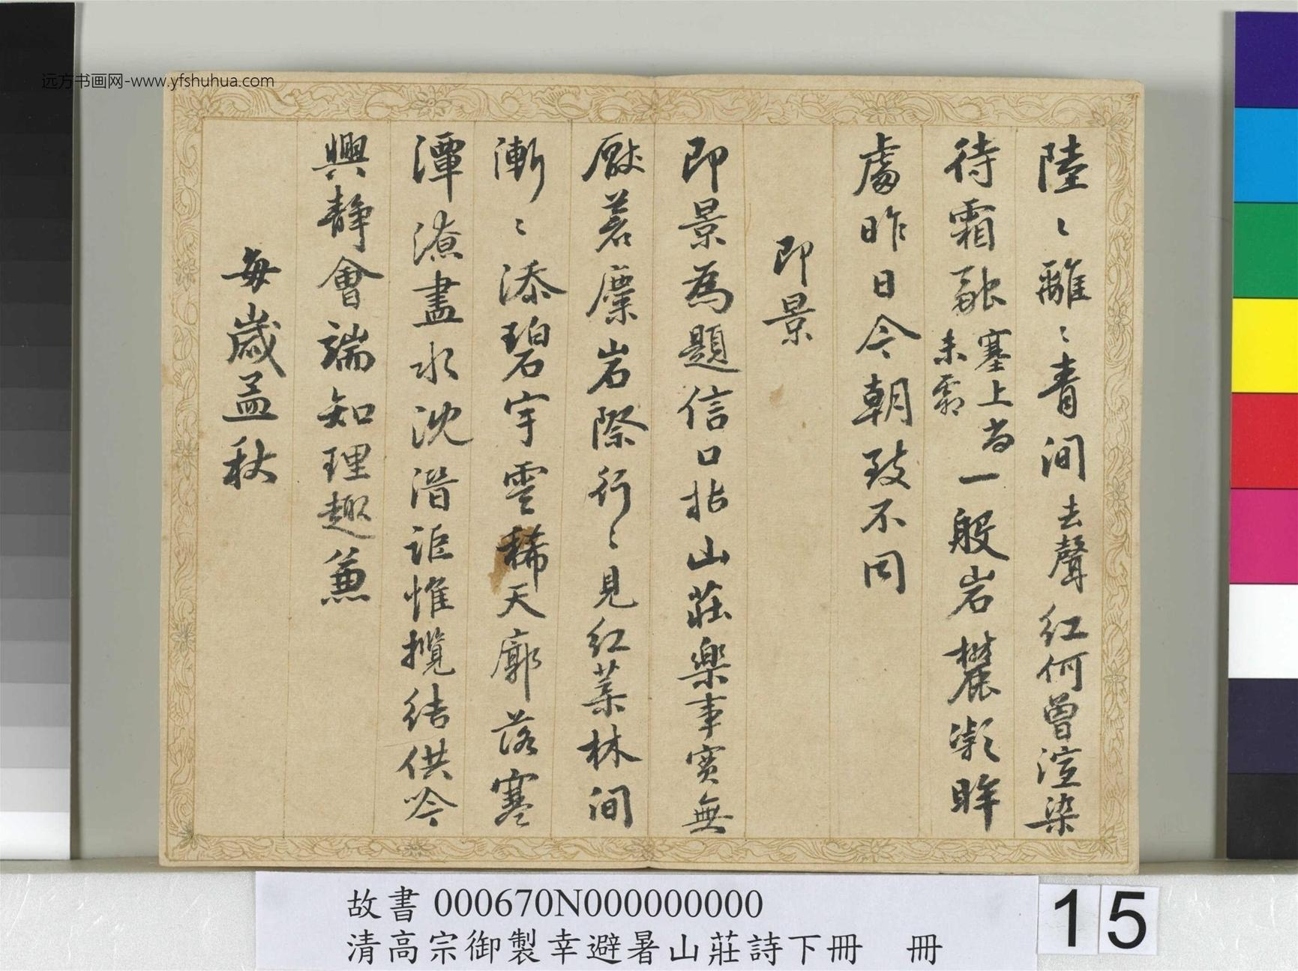 远方书画网-www.yfshuhua.com
陸〻離〻青间去聲紅何曾渲染
待霜融塞上尚未霜一般岩麓凝眸
處昨日今朝致不同
即景
即景為題信口拈山莊樂事實無
厭若麋岩際行〻見紅葉林间
漸〻添碧宇雲稀天廓落寒
潭潦盡水沈潜詎惟攬结供吟
興静會端知理趣兼
每歲孟秋
故書 000670N000000000
清高宗御製幸避暑山莊詩下冊 冊
15